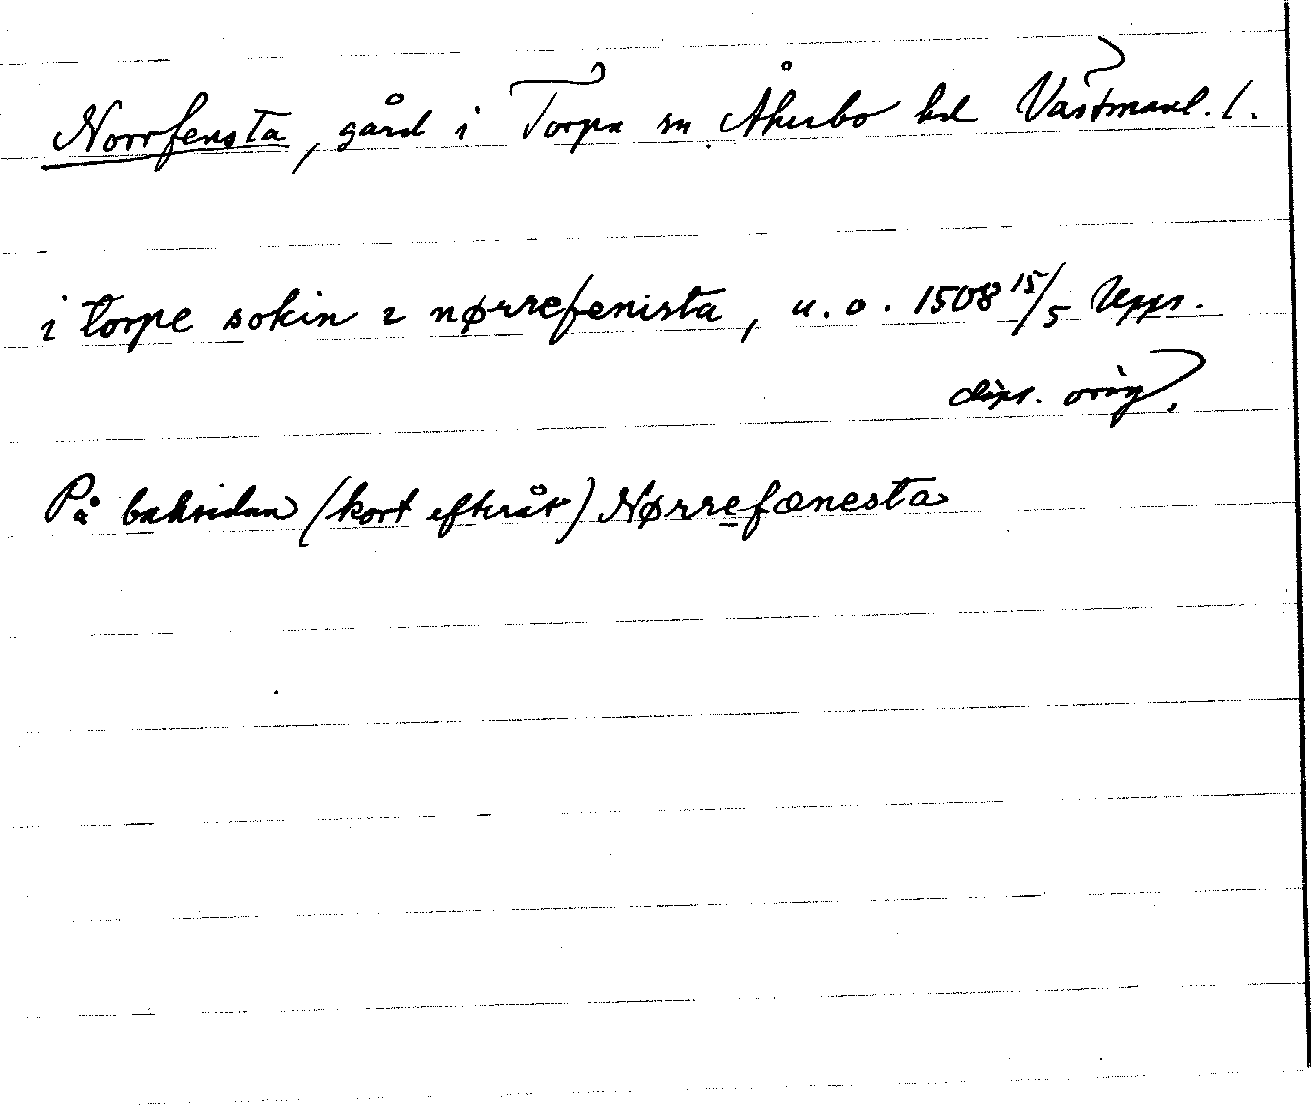 Norrfensta, gård i Torpa sn Åkerbo hd Västmanl. l.
i torpe sokin i nørrefenista, u.o. 1508 15/5 Upps.
dipl. orig.
På baksidan (kort efteråt) Nørrefænesta